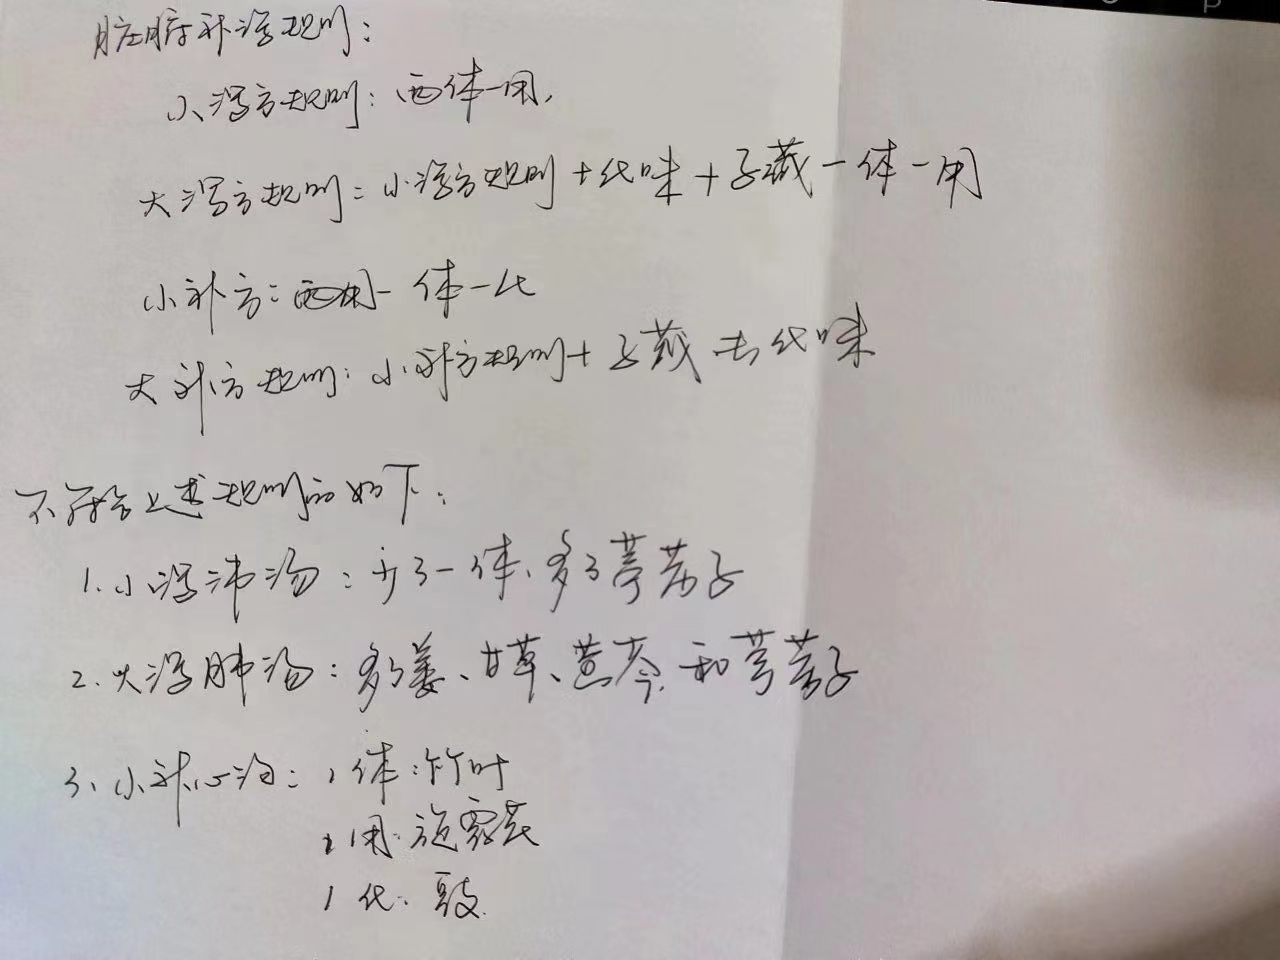 脏腑补泻规则：
小泻方规则：两体一用，
大泻方规则：小泻方规则+化味+子藏一体一用
小补方：两用一体一化
大补方规则：小补方规则+子藏去化味
不符合上述规则的如下：
1.小泻沛汤：少了一体、多了葶苈子
2.大泻肺汤：多了姜、甘草、黄芩、和葶苈子
3、小补心汤：1体：竹叶
1用：旋覆花
1化：豉